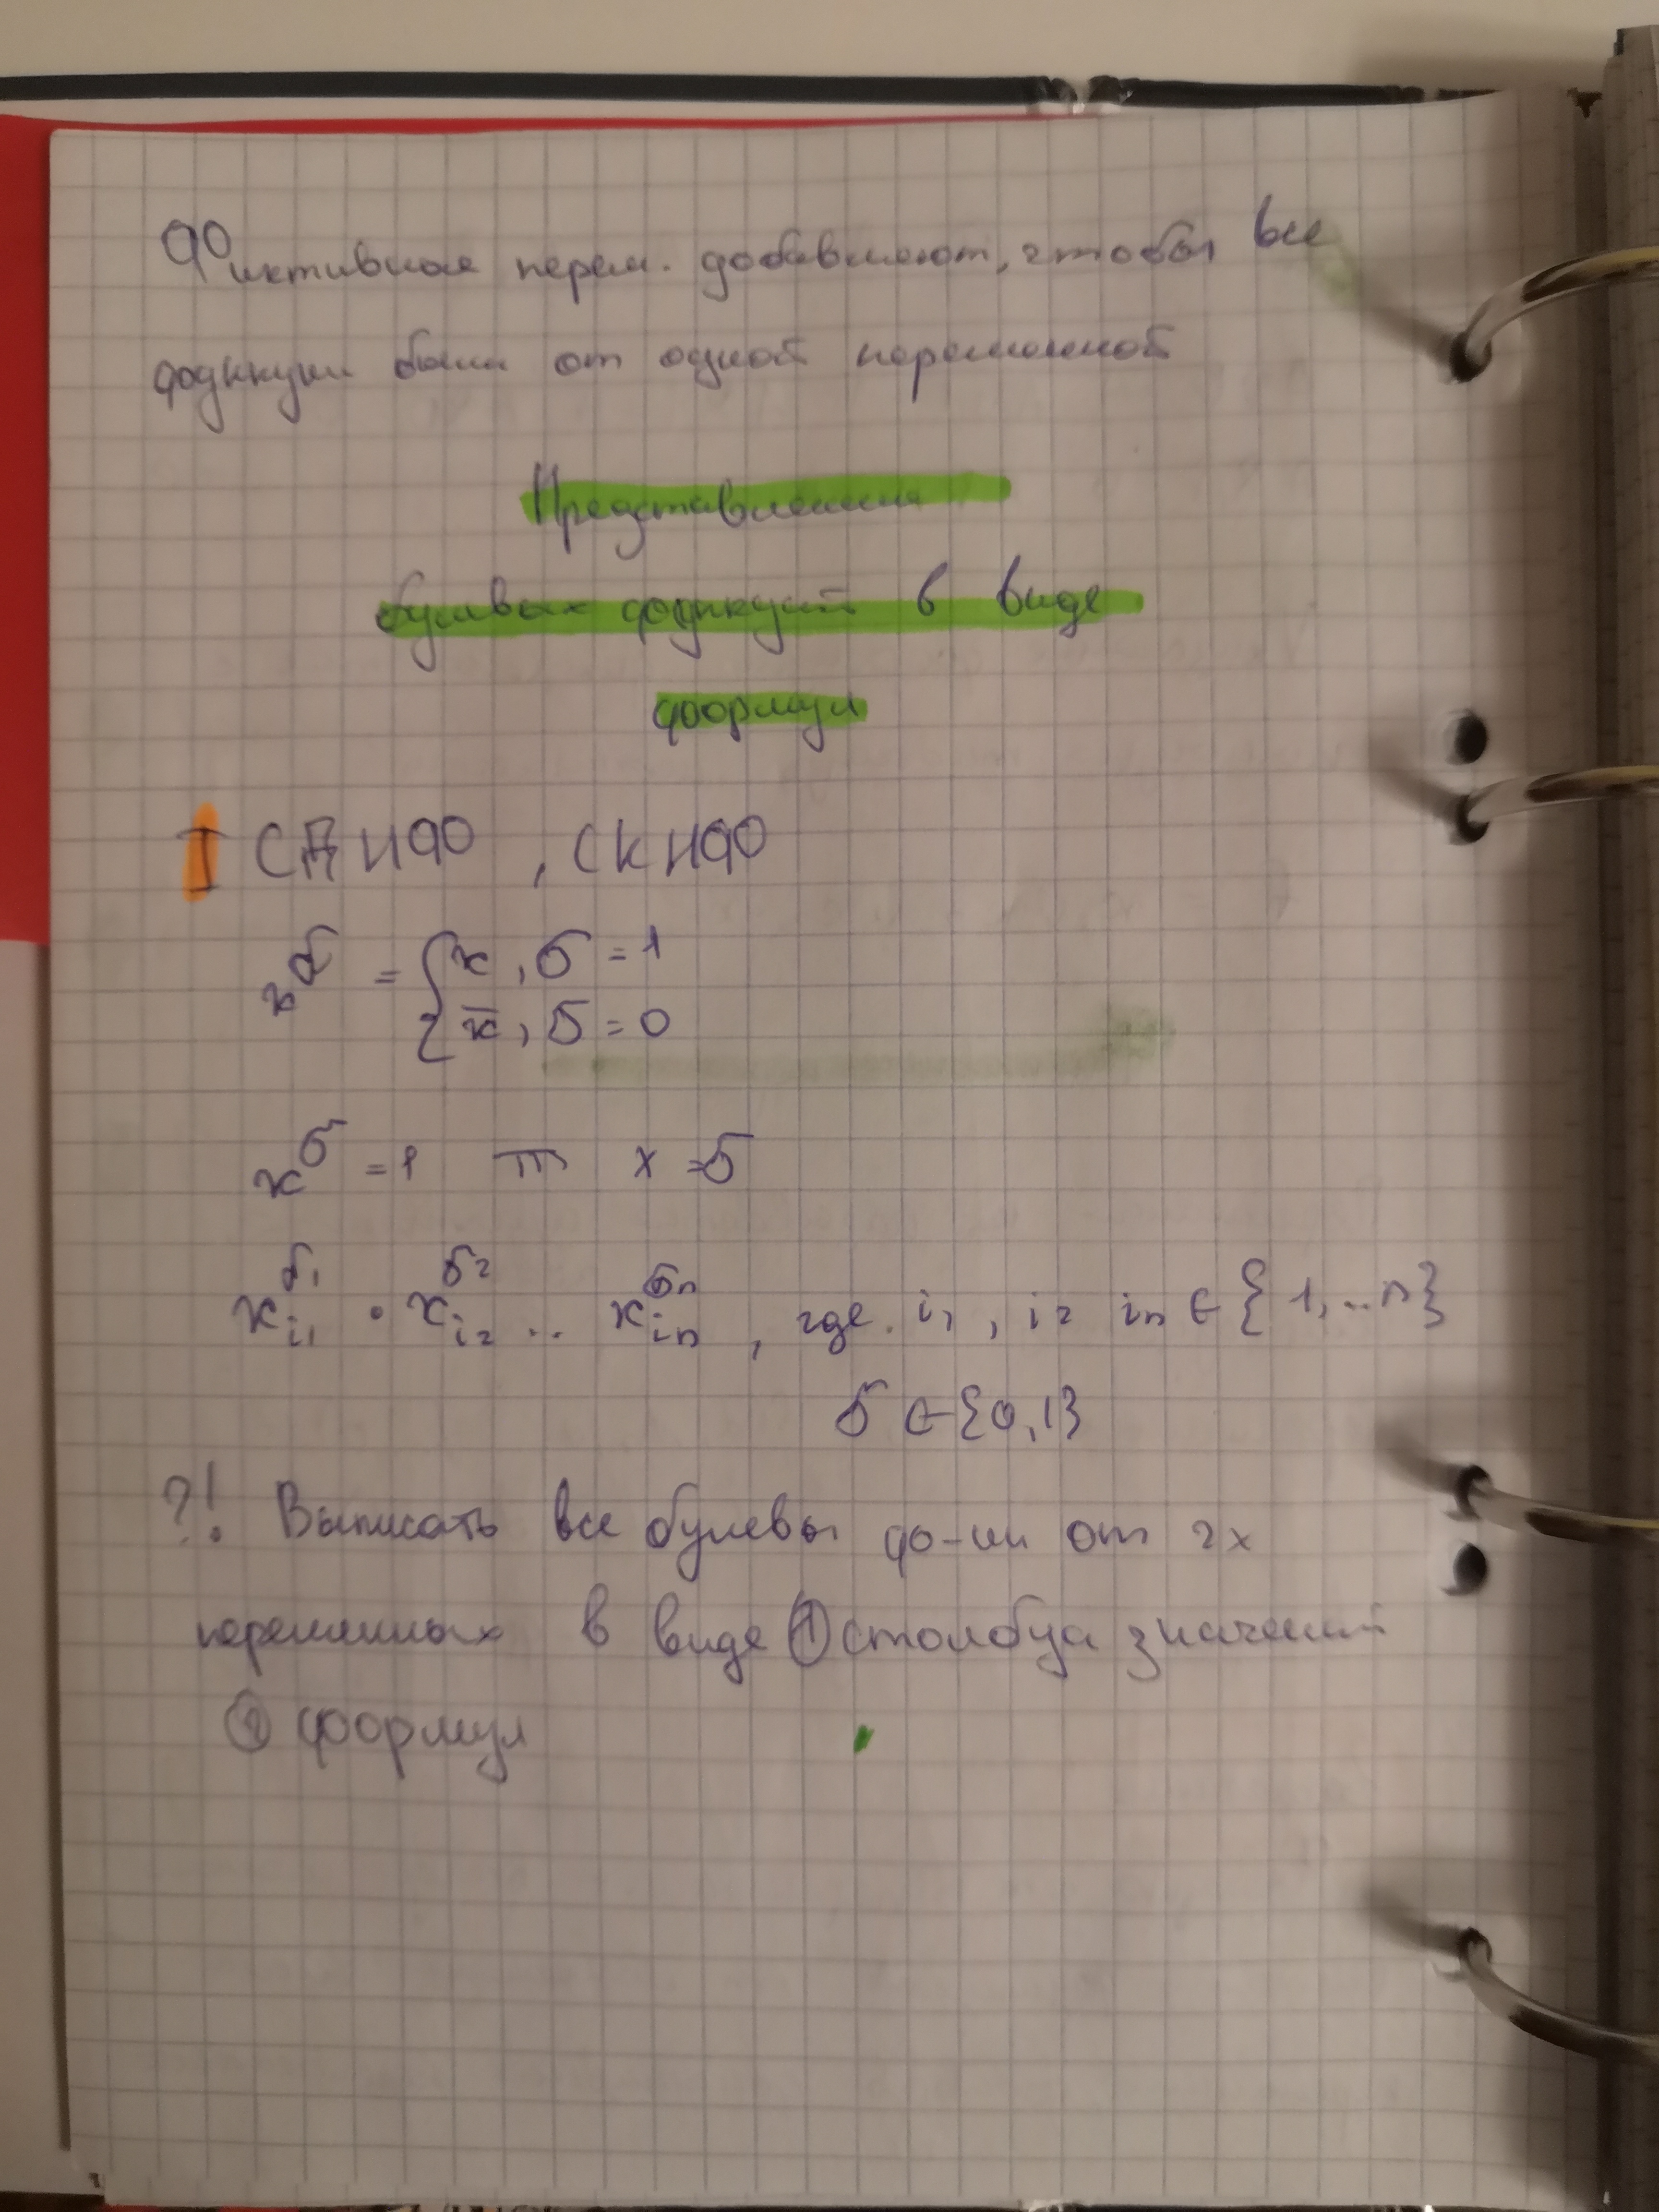 Фиктивные перем. добавляют, чтобы все
функции были от одной переменной
Представления
булевых функций в виде
формул
I СДНФ, СКНФ
x^σ = { x, σ = 1
x̄, σ = 0
x^σ = 1 x = σ
x_{i1}^{σ1} · x_{i2}^{σ2} .. x_{in}^{σn}, где i1, i2 in ∈ {1,..n}
σ ∈ {0,1}
?! Выписать все булевы ф-ии от 2х
переменных в виде ① столбца значений
② формул